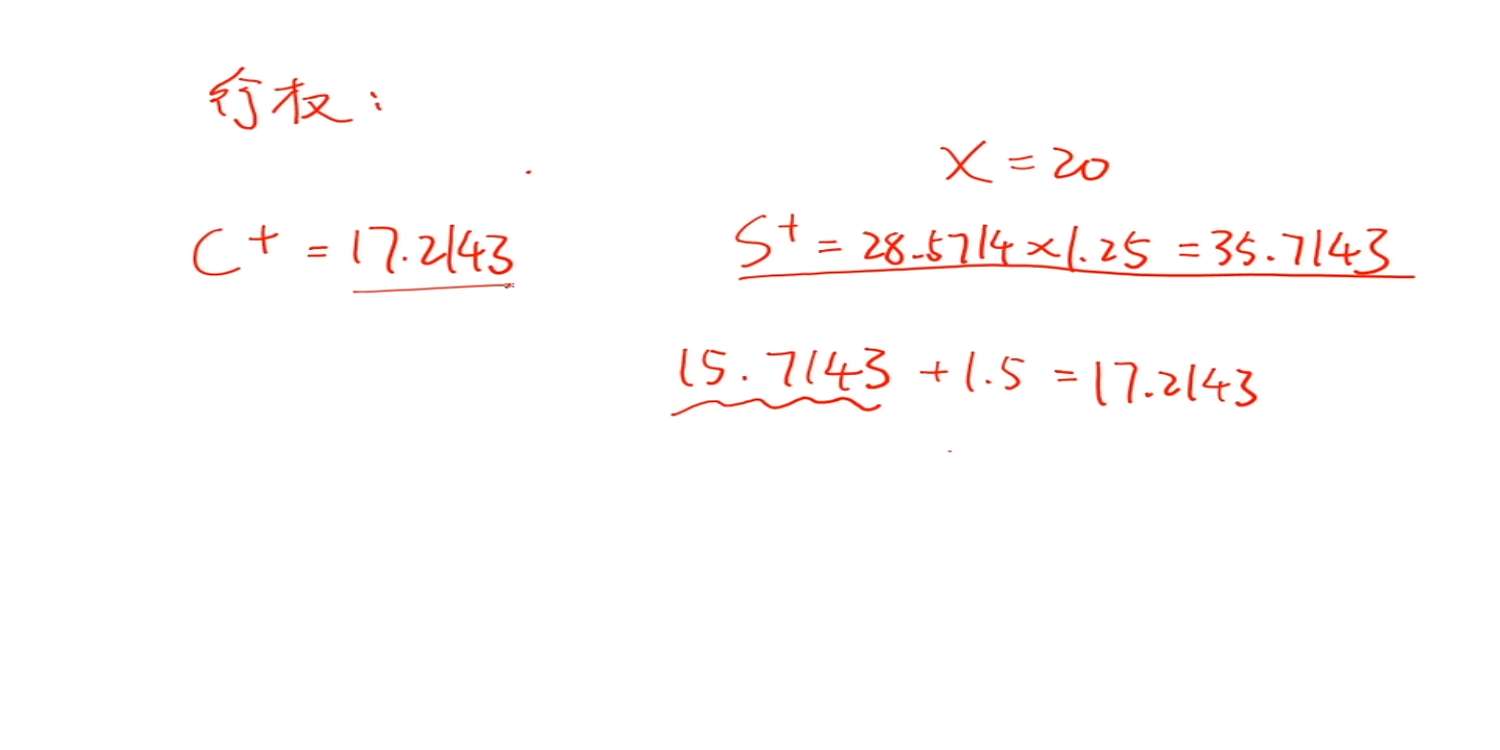 行权：
X = 20
C⁺ = 17.2143
S⁺ = 28.5714 × 1.25 = 35.7143
15.7143 + 1.5 = 17.2143